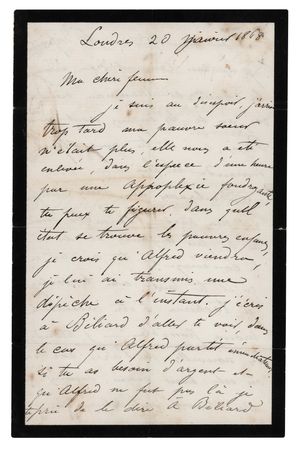 Londres 20 janvier 1868
Ma chère femme
je suis au désespoir, j'arrive
trop tard ma pauvre soeur
n'était plus, elle nous a été
enlevée, dans l'espace d'une heure
par une Appoplexie foudroyante
tu peux te figurer, dans quel
état se trouve les pauvres enfans,
je crois qu'Alfred viendra,
je lui ai transmis une
dépêche à l'instant. j'écris
à Béliard d'aller te voir, dans
le cas qu'Alfred partit immédiatement
si tu as besoin d'argent et
qu'Alfred ne fut pas là je
te prie de le dire à Béliard